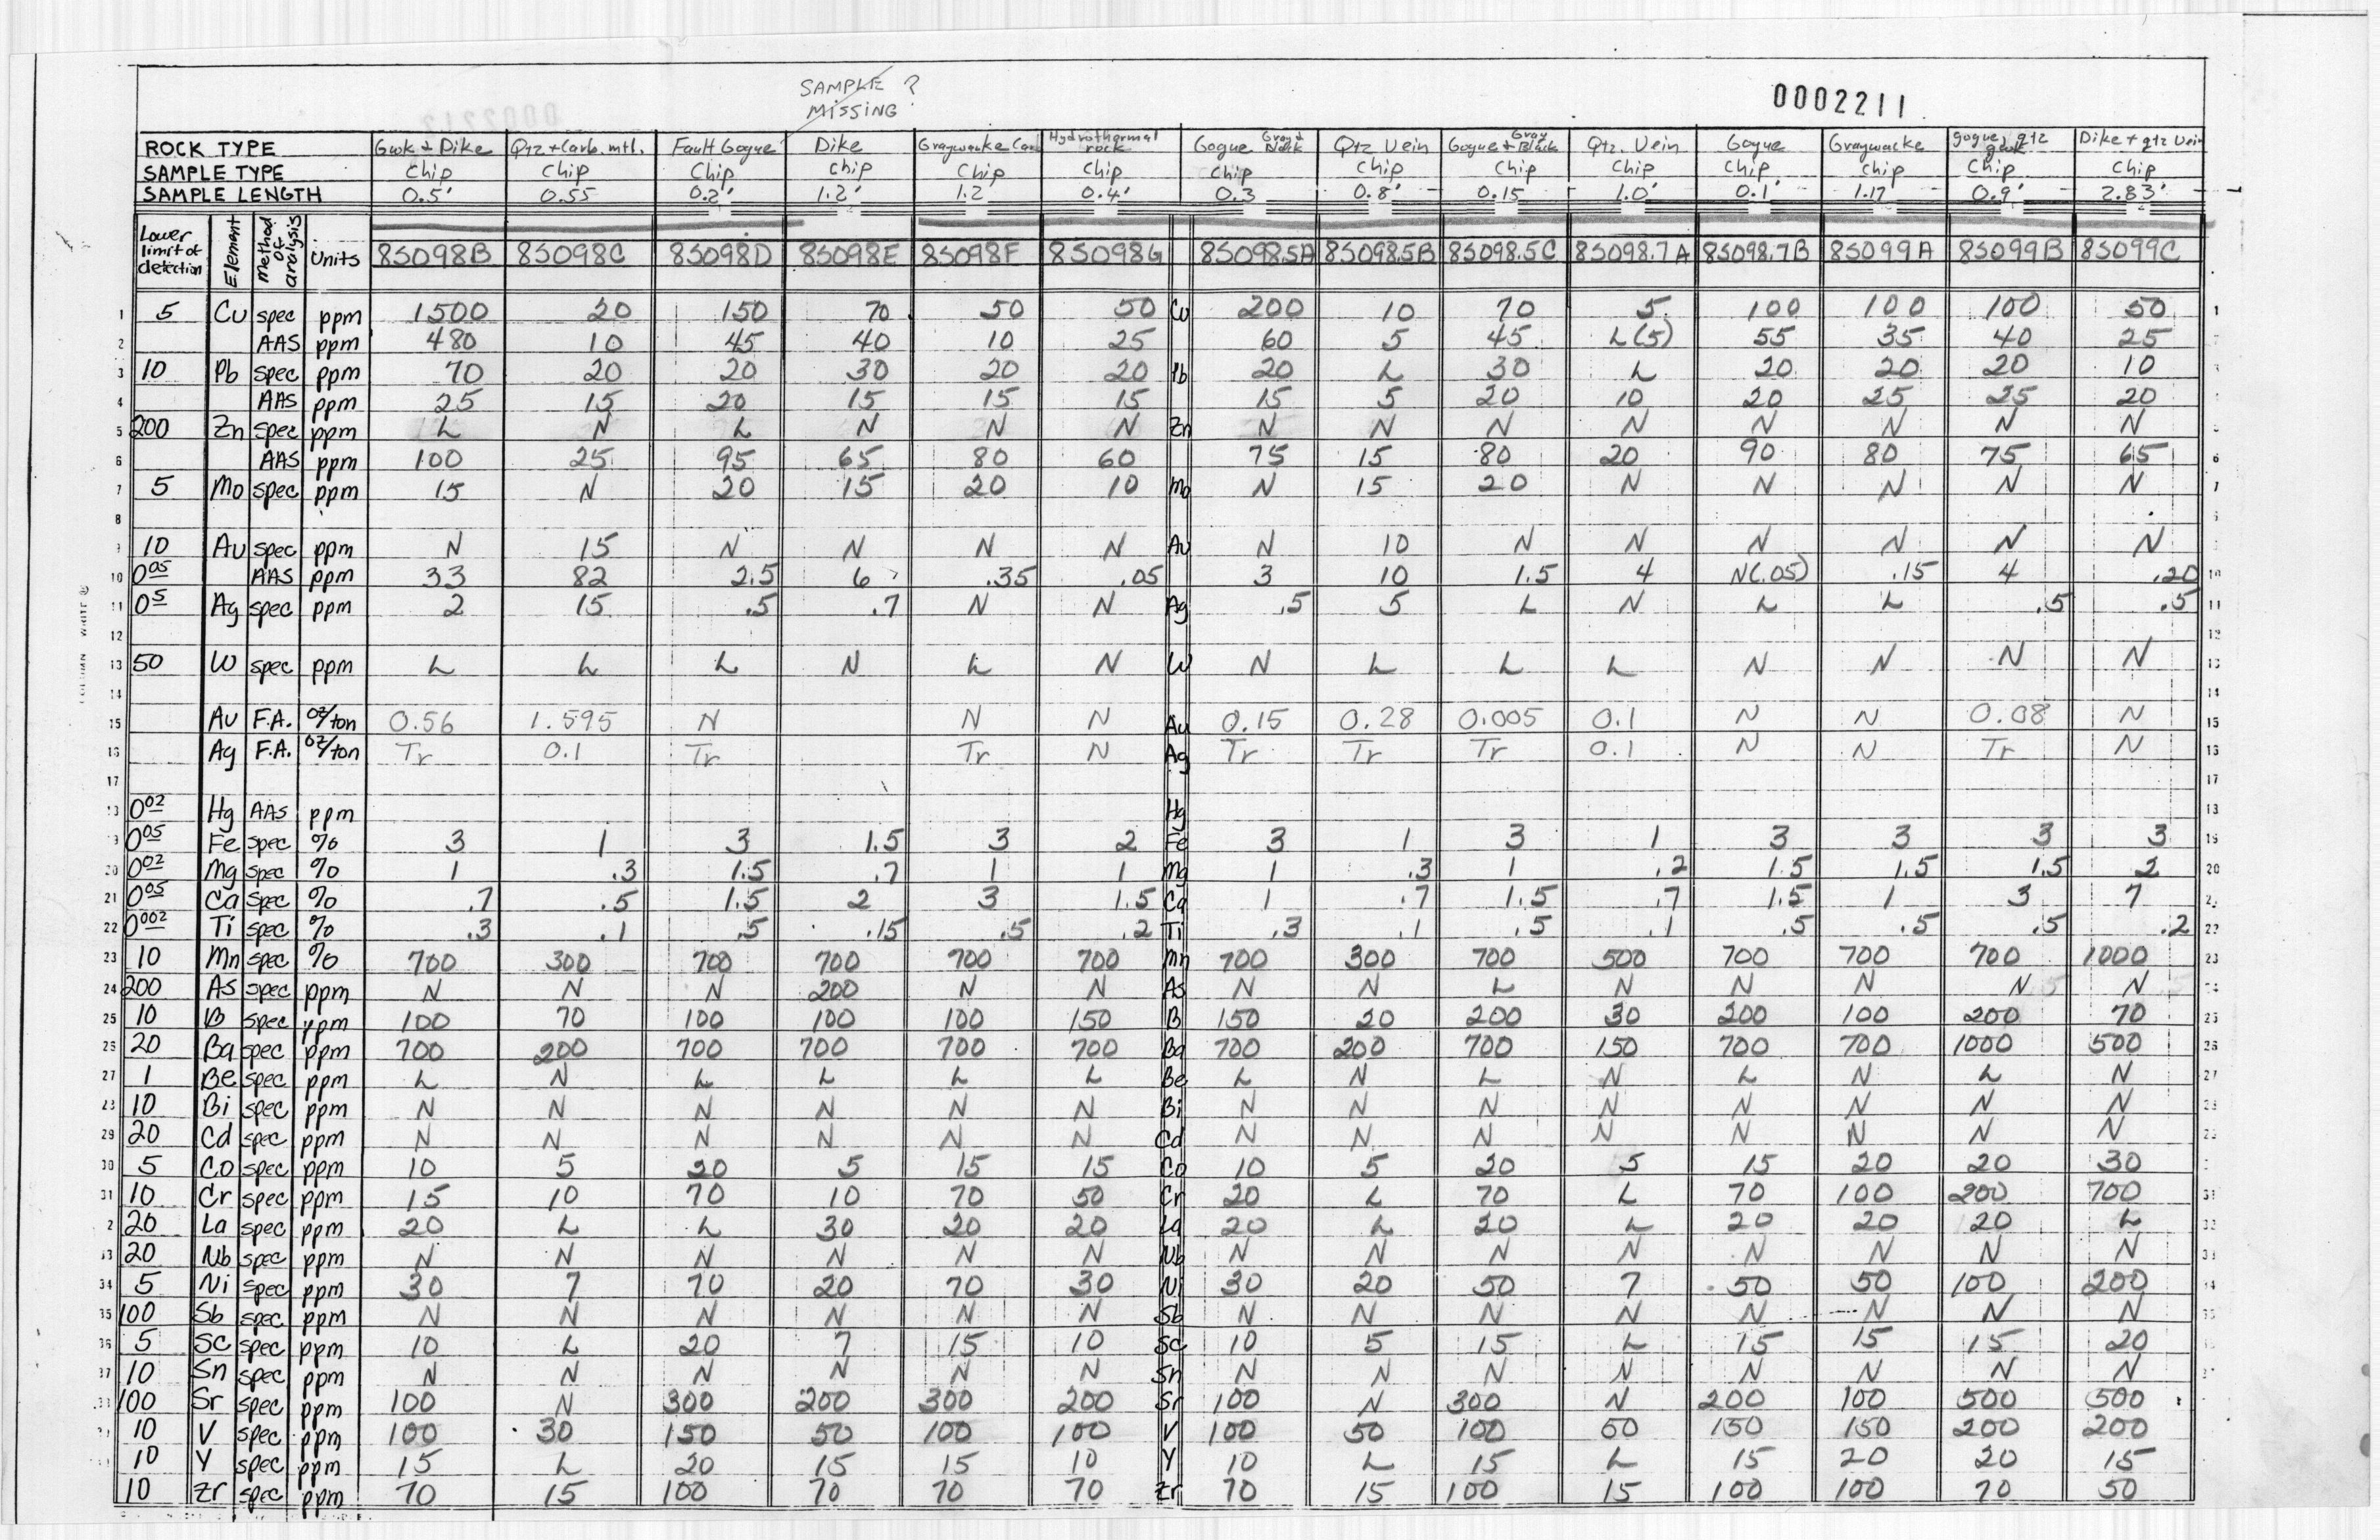 SAMPLE ?
MISSING
0002211
ROCK TYPE Gwk + Dike Qtz + Carb. mtl. Fault Gogue Dike Graywacke Hydrothermal rock Gogue Gray & Qtz Vein Gogue Gray + Black Qtz. Vein Gogue Graywacke gogue, qtz gwk Dike + qtz Vein
SAMPLE TYPE Chip Chip Chip chip Chip Chip Chip Chip Chip Chip Chip Chip Chip Chip
SAMPLE LENGTH 0.5' 0.55 0.2' 1.2' 1.2 0.4' 0.3 0.8' 0.15 1.0' 0.1' 1.17 0.9' 2.83'
Lower limit of detection Element Method of analysis Units 8S098B 8S098C 8S098D 8S098E 8S098F 8S098G 8S098.5A 8S098.5B 8S098.5C 8S098.7A 8S098.7B 8S099A 8S099B 8S099C
1 5 Cu spec ppm 1500 20 150 70 50 50 Cu 200 10 70 5 100 100 100 50 1
2 AAS ppm 480 10 45 40 10 25 60 5 45 L(5) 55 35 40 25
3 10 Pb spec ppm 70 20 20 30 20 20 Pb 20 L 30 L 20 20 20 10
4 AAS ppm 25 15 20 15 15 15 15 5 20 10 20 25 25 20
5 200 Zn spec ppm L N L N N N Zn N N N N N N N N
6 AAS ppm 100 25 95 65 80 60 75 15 80 20 90 80 75 65 6
7 5 Mo spec ppm 15 N 20 15 20 10 Mo N 15 20 N N N N N 7
8
9 10 Au spec ppm N 15 N N N N Au N 10 N N N N N N
10 0.05 AAS ppm 33 82 2.5 6 .35 .05 3 10 1.5 4 N(.05) .15 4 .20 10
11 0.5 Ag spec ppm 2 15 .5 .7 N N Ag .5 5 L N L L .5 .5 11
12 12
13 50 W spec ppm L L L N L N W N L L L N N N N 13
14 14
15 Au F.A. oz/ton 0.56 1.595 N N N Au 0.15 0.28 0.005 0.1 N N 0.08 N 15
16 Ag F.A. oz/ton Tr 0.1 Tr Tr N Ag Tr Tr Tr 0.1 N N Tr N 16
17 17
18 0.02 Hg AAS ppm Hg 18
19 0.05 Fe spec % 3 1 3 1.5 3 2 Fe 3 1 3 1 3 3 3 3 19
20 0.02 Mg spec % 1 .3 1.5 .7 1 1 Mg 1 .3 1 .2 1.5 1.5 1.5 2 20
21 0.05 Ca spec % .7 .5 1.5 2 3 1.5 Ca 1 .7 1.5 .7 1.5 1 3 7 21
22 0.002 Ti spec % .3 .1 .5 .15 .5 .2 Ti .3 .1 .5 .1 .5 .5 .5 .2 22
23 10 Mn spec % 700 300 700 700 700 700 Mn 700 300 700 500 700 700 700 1000 23
24 200 As spec ppm N N N 200 N N As N N L N N N N N 24
25 10 B spec ppm 100 70 100 100 100 150 B 150 20 200 30 200 100 200 70 25
26 20 Ba spec ppm 700 200 700 700 700 700 Ba 700 200 700 150 700 700 1000 500 26
27 1 Be spec ppm L N L L L L Be L N L N L N L N 27
28 10 Bi spec ppm N N N N N N Bi N N N N N N N N 28
29 20 Cd spec ppm N N N N N N Cd N N N N N N N N 29
30 5 Co spec ppm 10 5 20 5 15 15 Co 10 5 20 5 15 20 20 30
31 10 Cr spec ppm 15 10 70 10 70 50 Cr 20 L 70 L 70 100 200 700 31
2 20 La spec ppm 20 L L 30 20 20 La 20 L 20 L 20 20 20 L 32
33 20 Nb spec ppm N N N N N N Nb N N N N N N N N 33
34 5 Ni spec ppm 30 7 70 20 70 30 Ni 30 20 50 7 50 50 100 200 34
35 100 Sb spec ppm N N N N N N Sb N N N N N N N N 35
36 5 Sc spec ppm 10 L 20 7 15 10 Sc 10 5 15 L 15 15 15 20
37 10 Sn spec ppm N N N N N N Sn N N N N N N N N
100 Sr spec ppm 100 N 300 200 300 200 Sr 100 N 300 N 200 100 500 500
10 V spec ppm 100 30 150 50 100 100 V 100 50 100 50 150 150 200 200
10 Y spec ppm 15 L 20 15 15 10 Y 10 L 15 L 15 20 20 15
10 Zr spec ppm 70 15 100 70 70 70 Zr 70 15 100 15 100 100 70 50